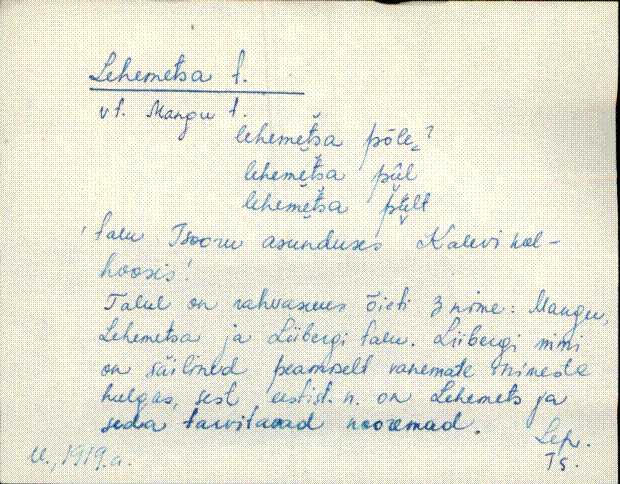 Lehemetsa t.
vt. Mangu t.
lehemetša põle?
lehemetša pül
lehemetša pült
'talu Tsooru asunduses Kalevi kol-
hoosis!
Talul on rahvasuus õieti 3 nime: Mangu,
Lehemetsa ja Liibergi talu. Liibergi nimi
on säilined peamiselt vanemate inimeste
hulgas, sest eestist. n. on Lehemets ja
seda tarvitavad nooremad.
Lepr.
U., 1919.a. TS.